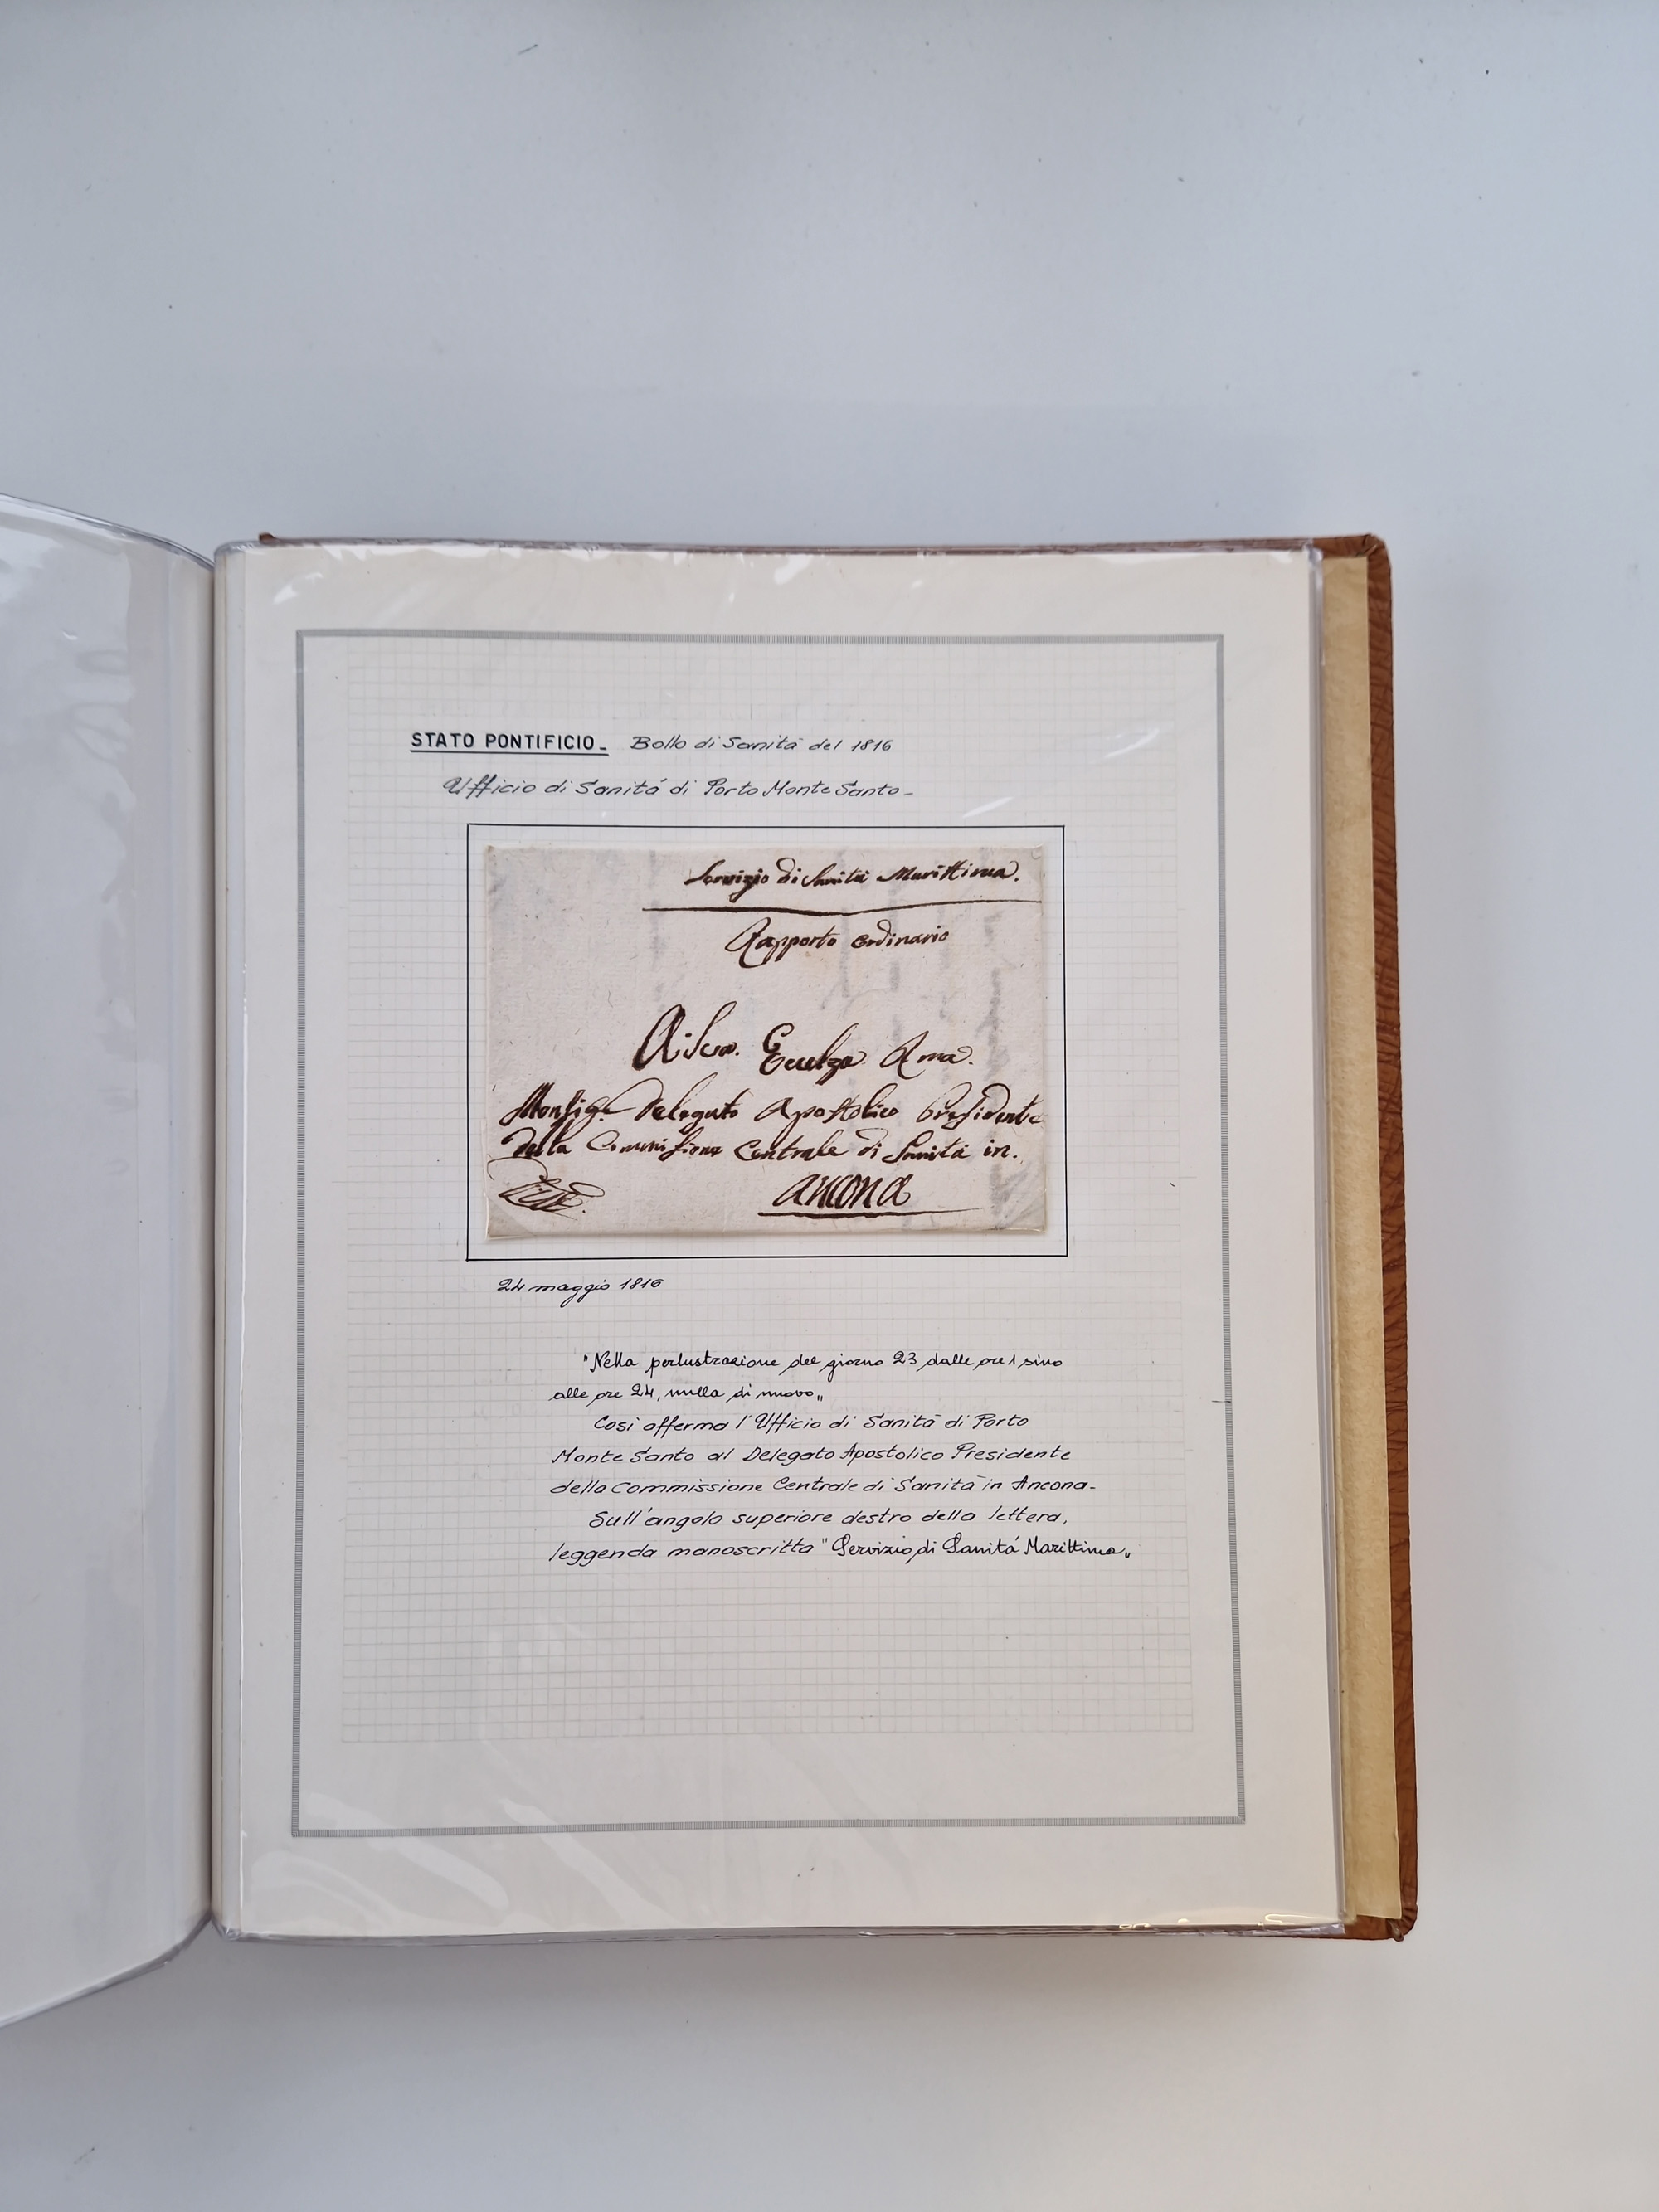 STATO PONTIFICIO_ Bollo di Sanitá del 1816
Ufficio di Sanitá di Porto Monte Santo_
Servizio di Sanità Marittima.
Rapporto ordinario
A Sua. Eccelza Rma.
Monsigr Delegato Apostolico Presidente
della Commissione Centrale di Sanità in.
Ancona
24 maggio 1816
"Nella perlustrazione del giorno 23 dalle ore 1 sino
alle ore 24, nulla di nuovo„
Cosi afferma l'Ufficio di Sanitá di Porto
Monte Santo al Delegato Apostolico Presidente
della Commissione Centrale di Sanitá in Ancona_
Sull'angolo superiore destro della lettera,
leggenda manoscritta "Servizio di Sanitá Marittima„